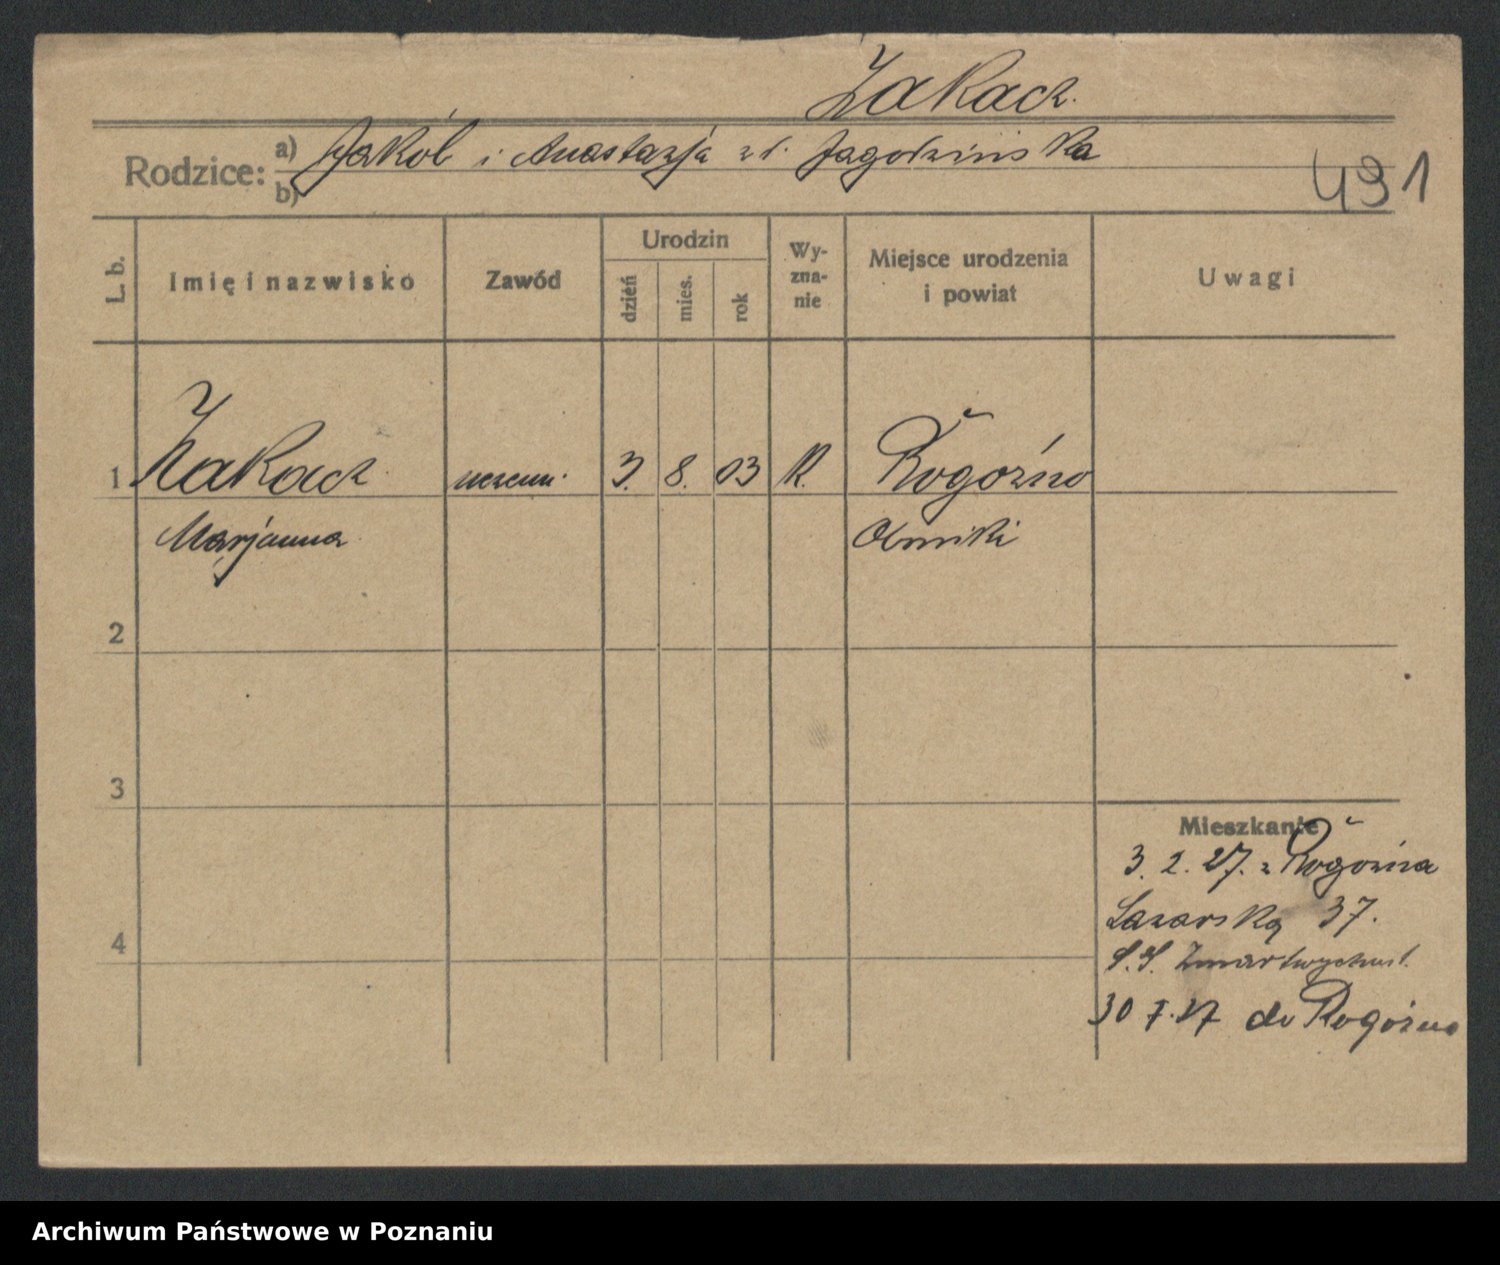 Żakacz.
Rodzice:
a) Jakób i Anastazja z d. Jagodzińska
b)
491
L. b.
Imię i nazwisko
Zawód
Urodzin
dzień
mies.
rok
Wy-
zna-
nie
Miejsce urodzenia
i powiat
Uwagi
1 Żakacz uczenn. 3. 8. 03 K. Rogoźno
Marjanna Oborniki
2
3
Mieszkanie
3. 2. 27. z Rogoźna
Łazarska 37.
4
S.S. Zmartwychwst.
30 I. 27 do Rogoźna
Archiwum Państwowe w Poznaniu